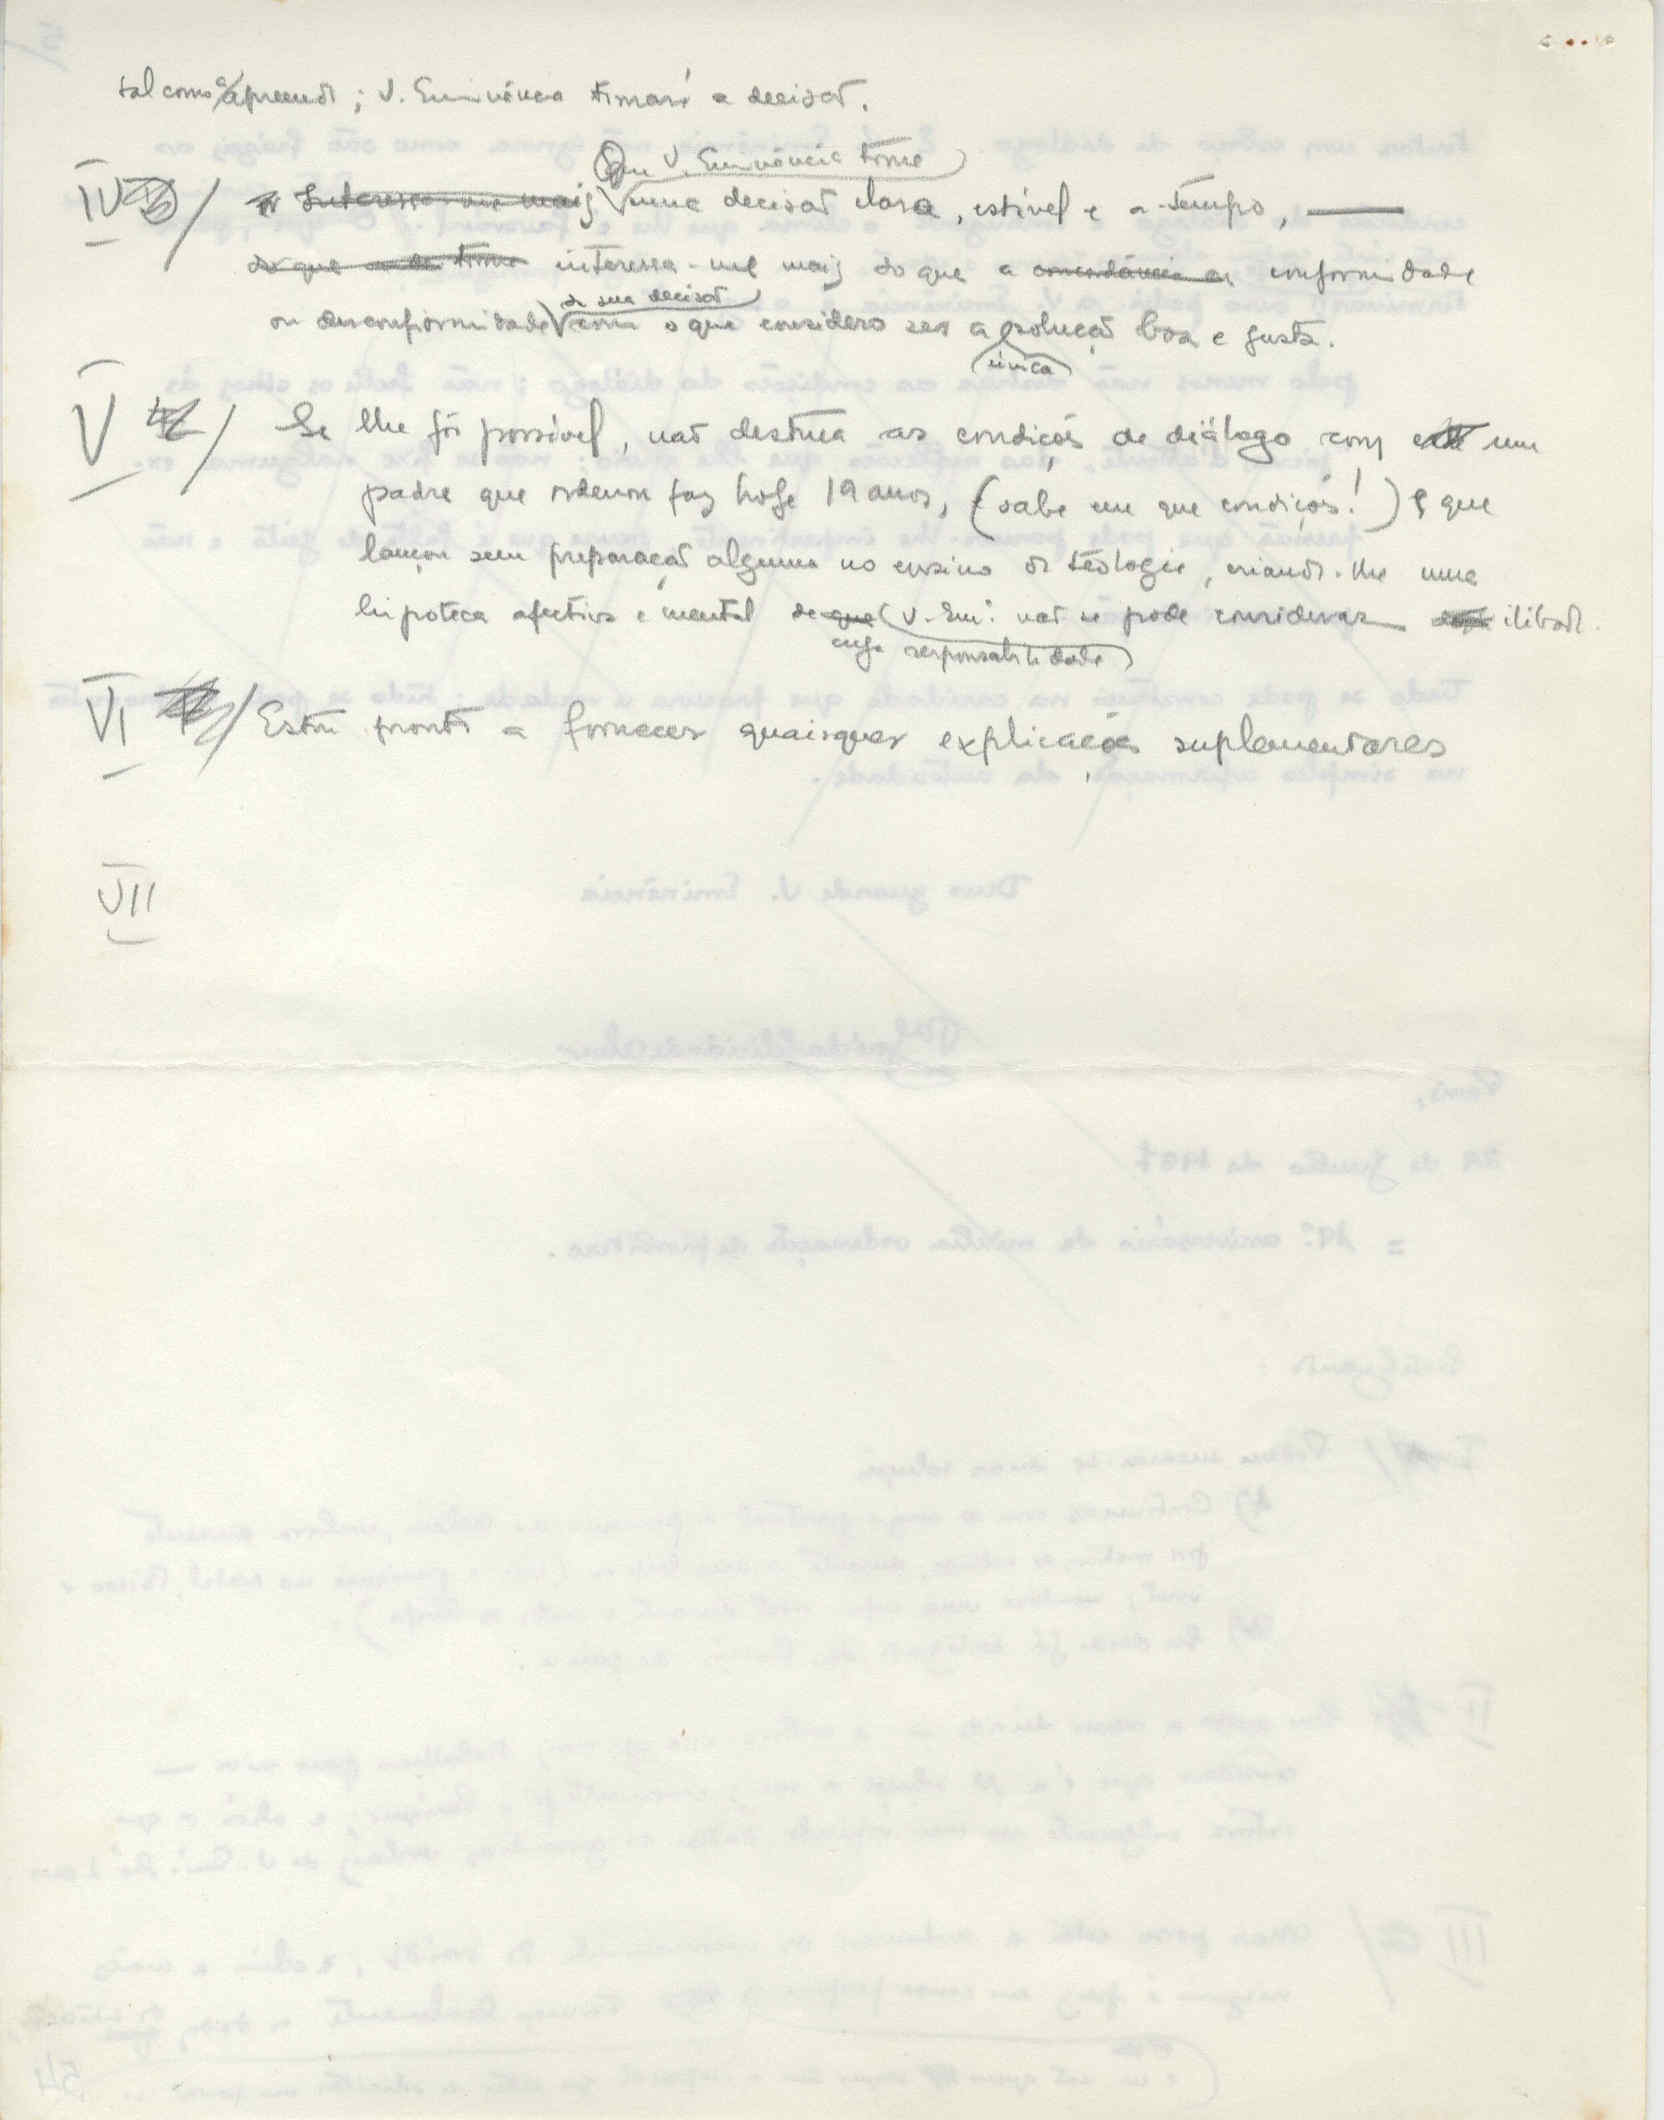 tal como o apreendi; V. Eminência tomará a decisão.
Que V. Eminência tome
IV / Interessa-me mais uma decisão clara, estável e a-tempo,
do que tome interessa-me mais do que a concordância conformidade
da sua decisão
ou desconformidade com o que considero ser a solução boa e justa.
única
V / Se lhe fôr possível, não destrua as condições de diálogo com um
padre que ordenou faz hoje 19 anos, (sabe em que condições!) e que
lançou sem preparação alguma no ensino da teologia, criando-lhe uma
hipoteca afectiva e mental de que V. Emª. não se pode considerar ilibado.
cuja responsabilidade
VI / Estou pronto a fornecer quaisquer explicações suplementares
VII